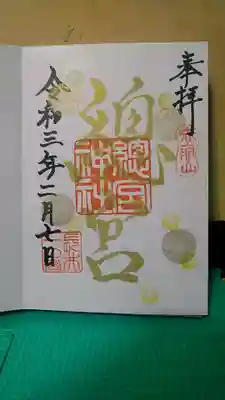 奉拝
總宮
總宮神社
令和三年二月七日